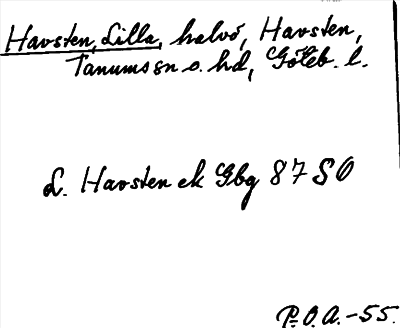 Havsten, Lilla, halvö, Havsten,
Tanums sn o. hd, Göteb. l.
L. Havsten ek Gbg 87 SO
P.O.A. -55.